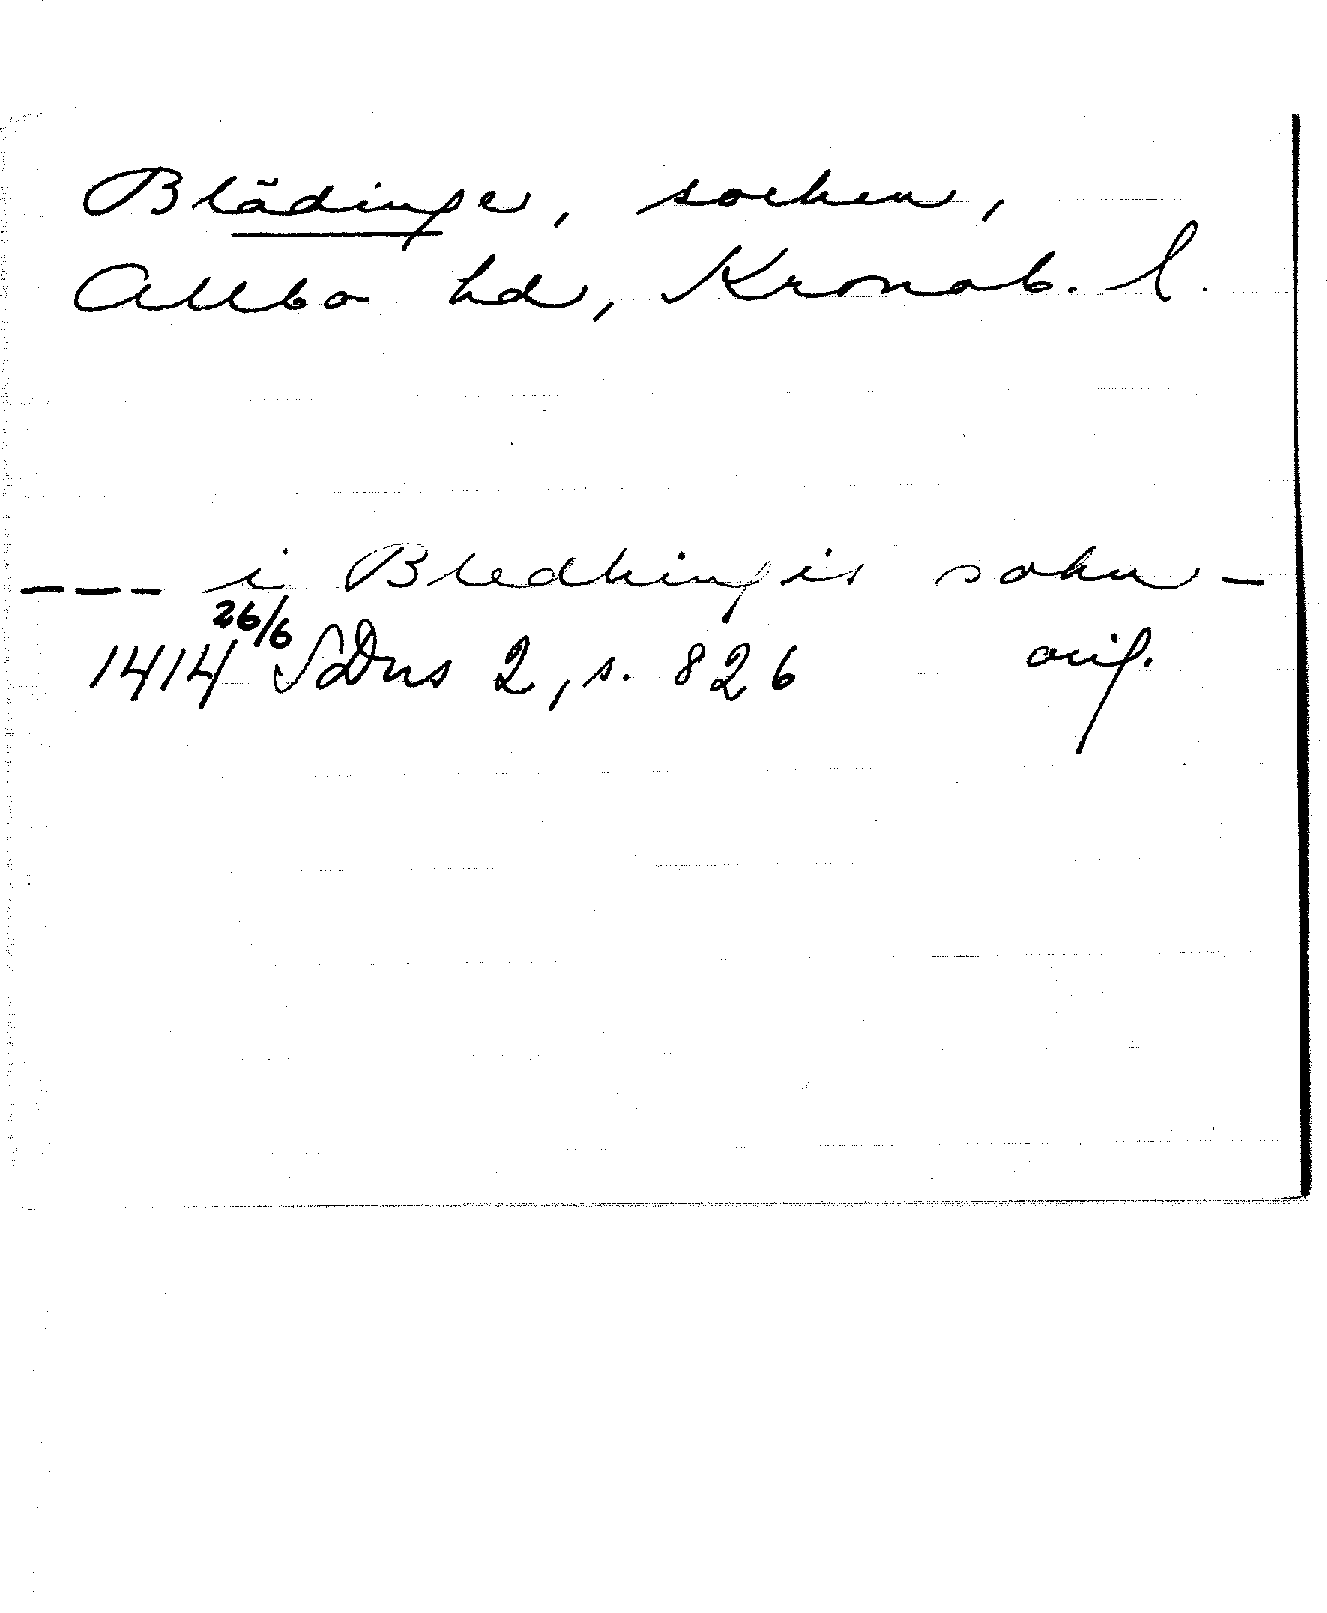 Blädinge, socken,
Allbo hd, Kronob. l.
--- i Bledhingis sokn -
1414 26/6 SDns 2, s. 826 orig.